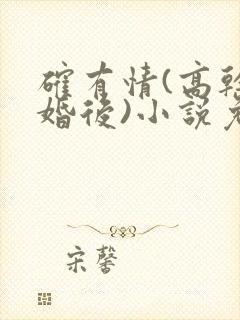 確有情(高幹
婚後)小說
宋馨